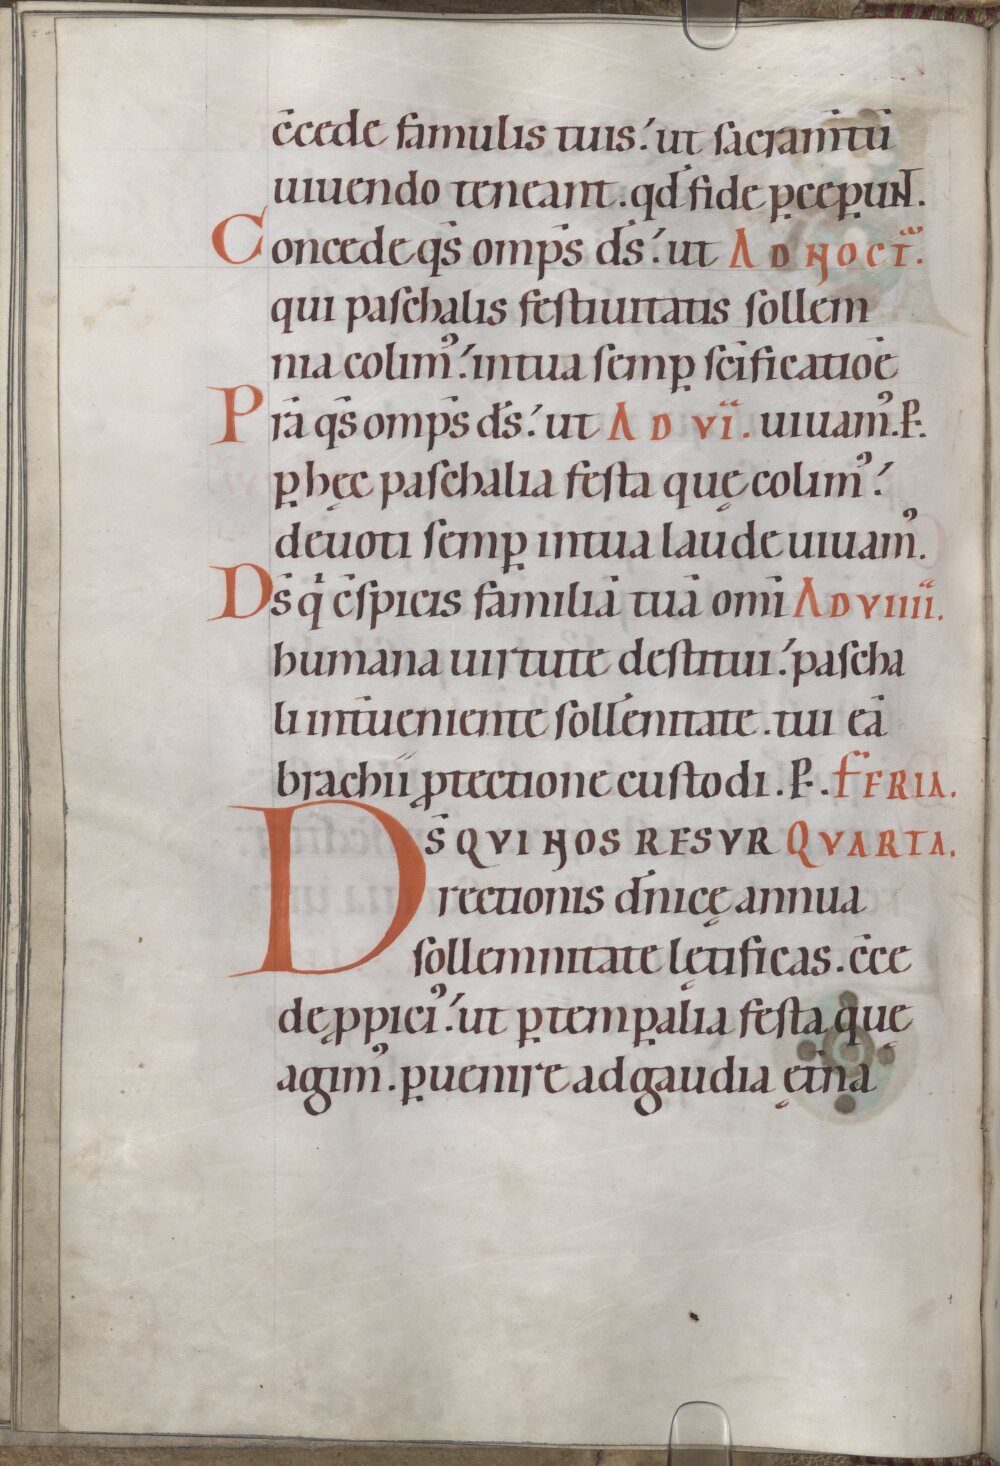 c̄cede famulis tuis. ut sacram̄tū
uiuendo teneant. qd̄ fide ꝑceꝑuNT.
Concede qs̄ omp̄s ds̄. ut AD NOCT̄.
qui paschalis festiuitatis sollem
nia colim᾿. in tua semꝑ sc̄ificatiōe
Pr̄a qs̄ omp̄s ds̄. ut AD VI. uiuam᾿. P.
ꝑ hęc paschalia festa quę colim᾿.
deuoti semꝑ in tua laude uiuam᾿.
Ds̄ qi c̄spicis familiā tuā omī AD VIIII.
humana uirtute destitui. pascha
li int̄ueniente soll̄ennitate. tui eā
brachii ꝓtectione custodi. P. FERIA.
DS̄ QVI NOS RESVR QVARTA.
rectionis dn̄icę annua
sollemnitate lętificas. c̄ce
de ꝓpici᾿. ut ꝑ temꝑalia festa quę
agim᾿. ꝑuenire ad gaudia ęt̄na